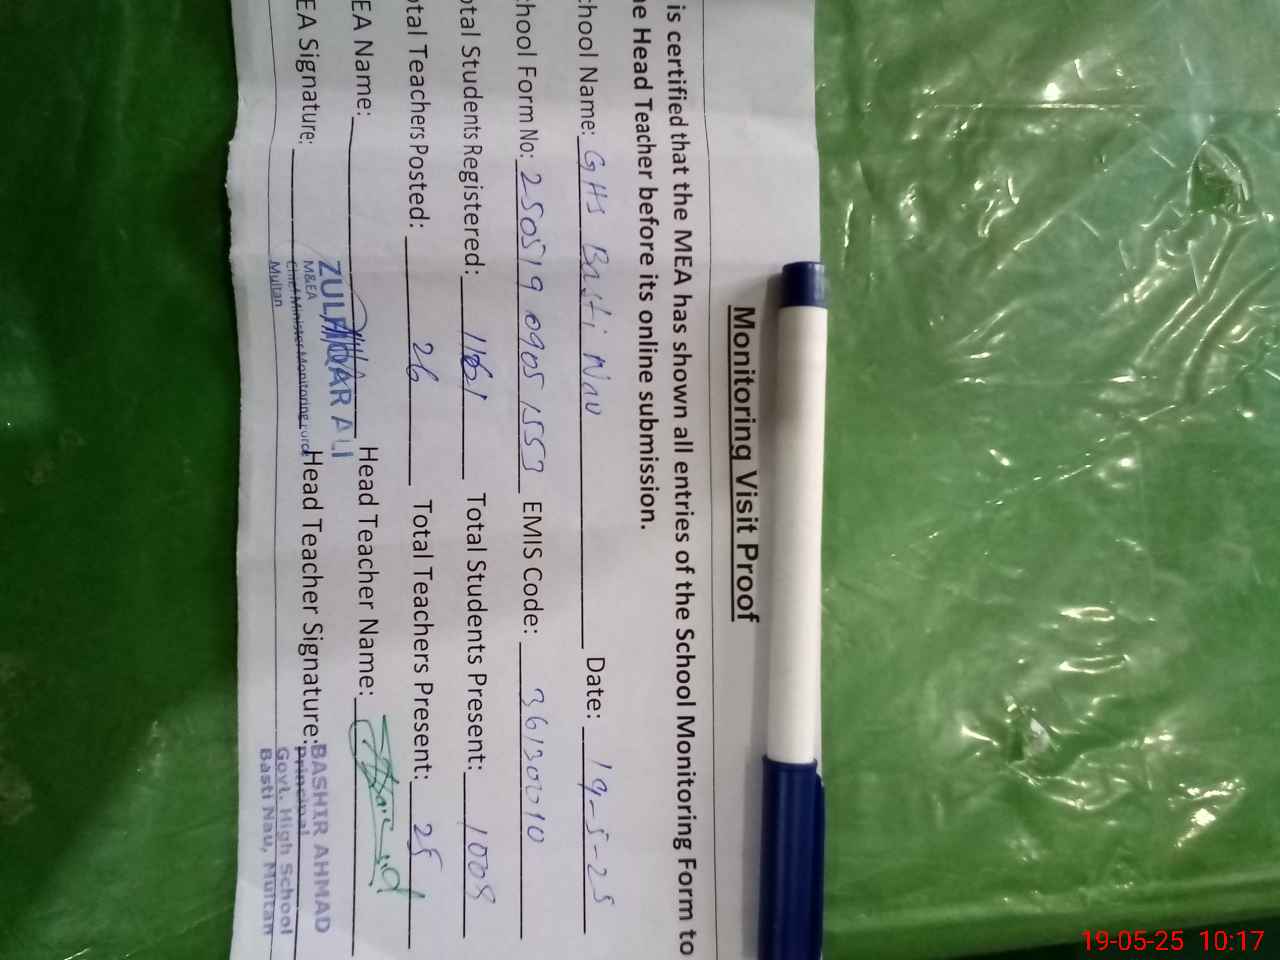 Monitoring Visit Proof
is certified that the MEA has shown all entries of the School Monitoring Form to
e Head Teacher before its online submission.
chool Name: GHS Basti Nau Date: 19-5-25
chool Form No: 250519 0905 1553 EMIS Code: 36130010
otal Students Registered: 1161 Total Students Present: 1008
otal Teachers Posted: 26 Total Teachers Present: 25
EA Name: Head Teacher Name:
EA Signature: Head Teacher Signature:
ALI
M&EA
Chief Minister Monitoring
Multan
BASHIR AHMAD
Principal
Govt. High School
Basti Nau, Multan
19-05-25 10:17